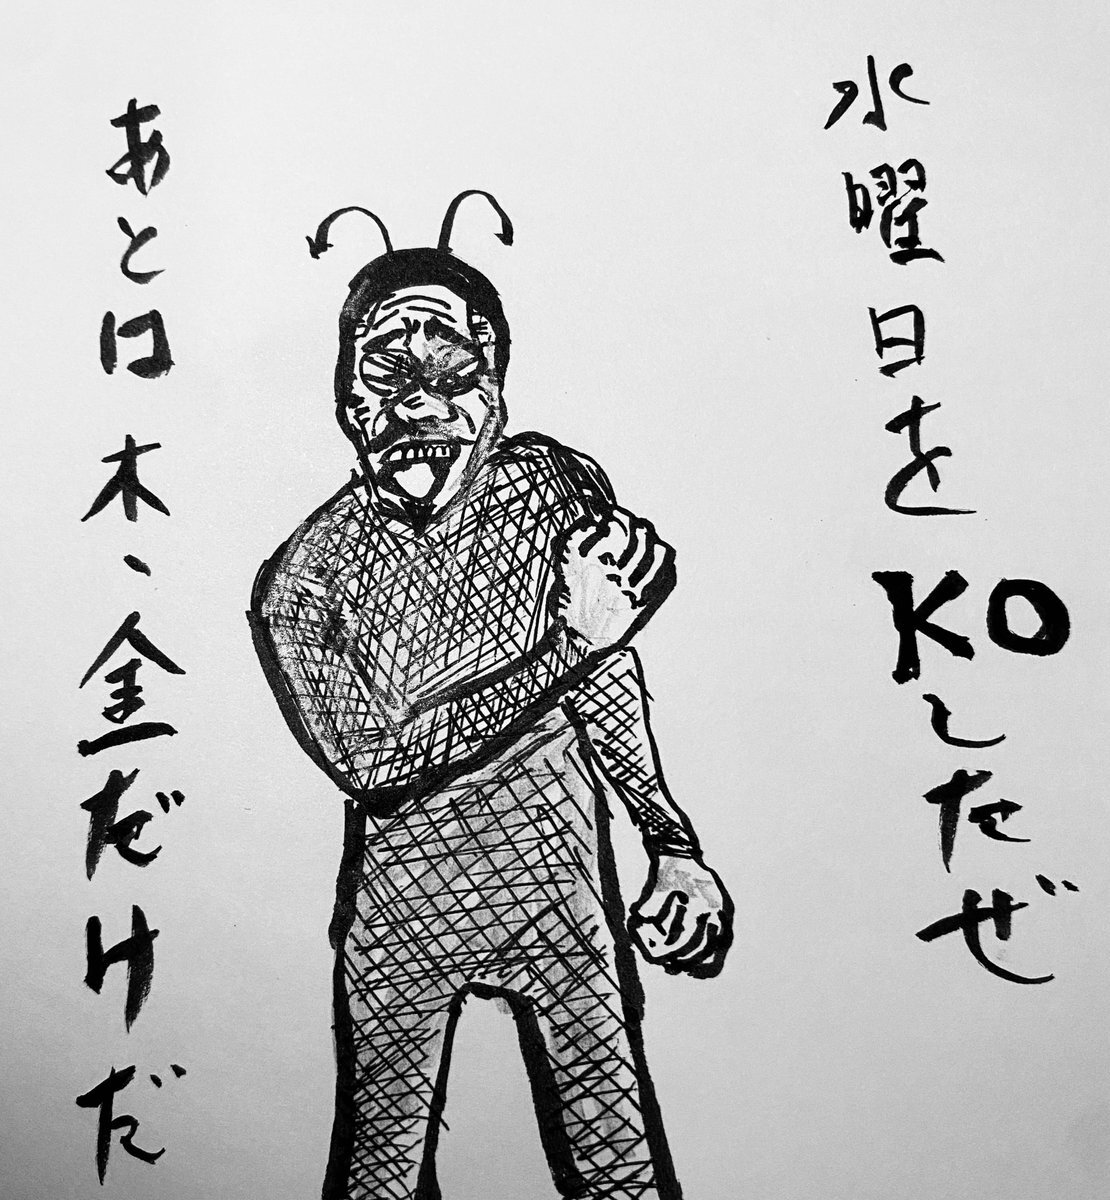 水曜日をKOしたぜ
あとは木、金だけだ